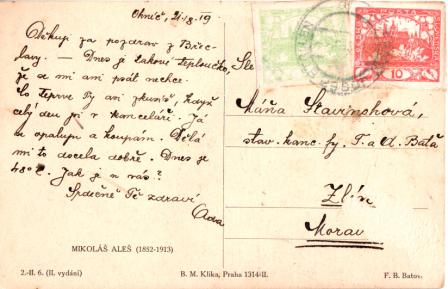 Ohníč, 21/8. 19.
Děkuji za pozdrav z Břec-
lavy. — Dnes je takové teploučko,
že se mi ani psát nechce.
Co teprve Ty asi zkusíš, když
celý den jsi v kanceláři. Já
se opaluji a koupám. Dělá
mi to docela dobře. Dnes je
48°C. Jak je u vás?
Srdečně Tě zdraví
Ada
MIKOLÁŠ ALEŠ (1852-1913)
2.-II. 6. (II. vydání)
B. M. Klika, Praha 1314-II.
F. B. Batov.
POŠTA
10
Sle
Máňa Stavinohová,
stav. kanc. fy. T. a A. Baťa
Zlín
Morav